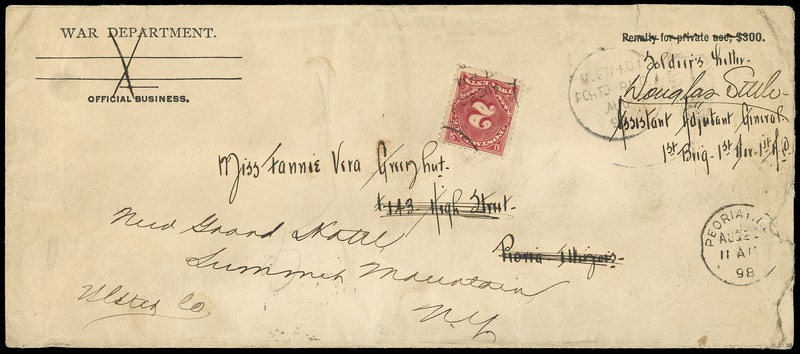 WAR DEPARTMENT.
OFFICIAL BUSINESS.
Penalty for private use, $300.
Soldier's Letter
Douglas Settle
Assistant Adjutant General
1st Brig. 1st
2
Miss Fannie Vera Greenhut.
143 High Street.
Peoria Illinois.
New Grand Hotel
Summit Mountain
Ulster Co.
N.Y
PEORIA
AUG
11 AM
98